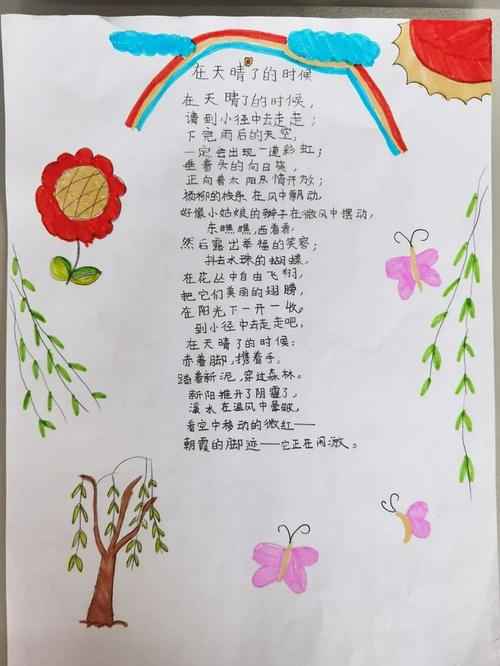 在天晴了的时候
在天晴了的时候，
请到小径中去走走；
下完雨后的天空，
一定会出现一道彩虹；
垂着头的向日葵，
正向着太阳尽情开放；
杨柳的枝条在风中飘动，
好像小姑娘的辫子在微风中摆动，
东瞧瞧，西看看，
然后露出幸福的笑容；
抖去水珠的蝴蝶，
在花丛中自由飞翔，
把它们美丽的翅膀，
在阳光下一开一收。
到小径中去走走吧，
在天晴了的时候：
赤着脚，携着手，
踏着新泥，穿过森林。
新阳推开了阴霾了，
溪水在温风中晕皱，
看空中移动的微红——
朝霞的脚迹——它正在闲激。